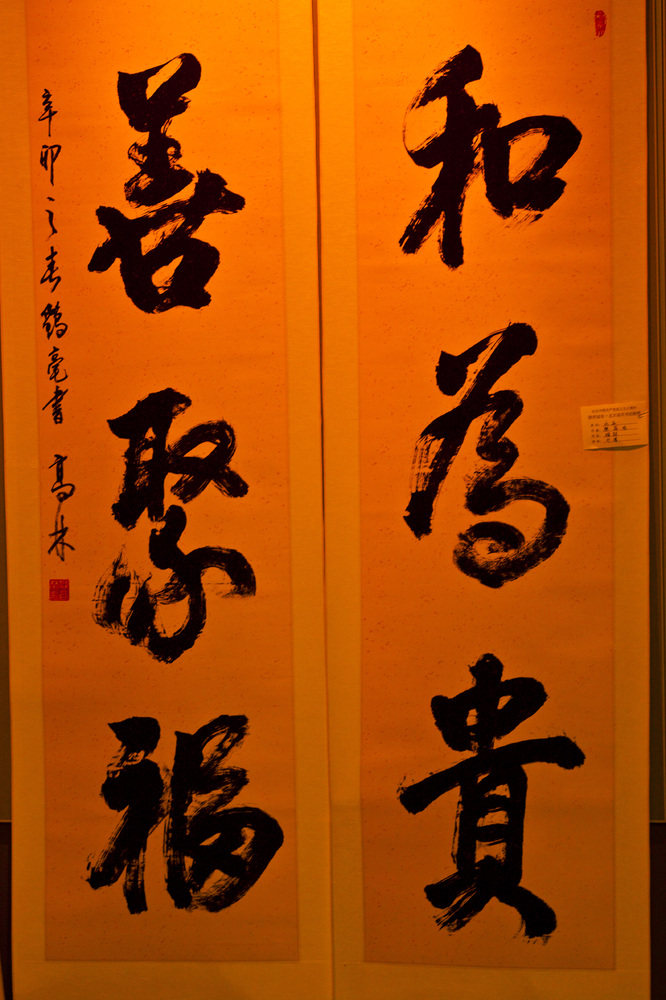 和為貴
善聚福
辛卯之春鶴毫書
高林